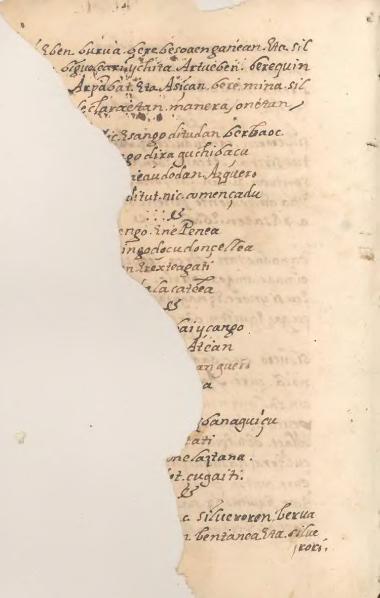 Eben. burua. bere. besoaenganean. Eta. sil
biguocariychita. Artueben. berequin
Arpabat. Eta. Asican. bere. mina. sil
eclaraetan. manera. onetan
nic. Esango ditudan berbaoc
ngo dira guchibacu
neaudodan. Azquero
ditut. nic. començadu
engo. Ene Penea
ingo docu donçellea
n trexteagati
hala catbea
bai ycango
Atean
an guero
a
banaguiçu
tati
one laztana.
ot. cugaiti.
c. silueroren. berua
n. bentanea. Eta. silue
rori.